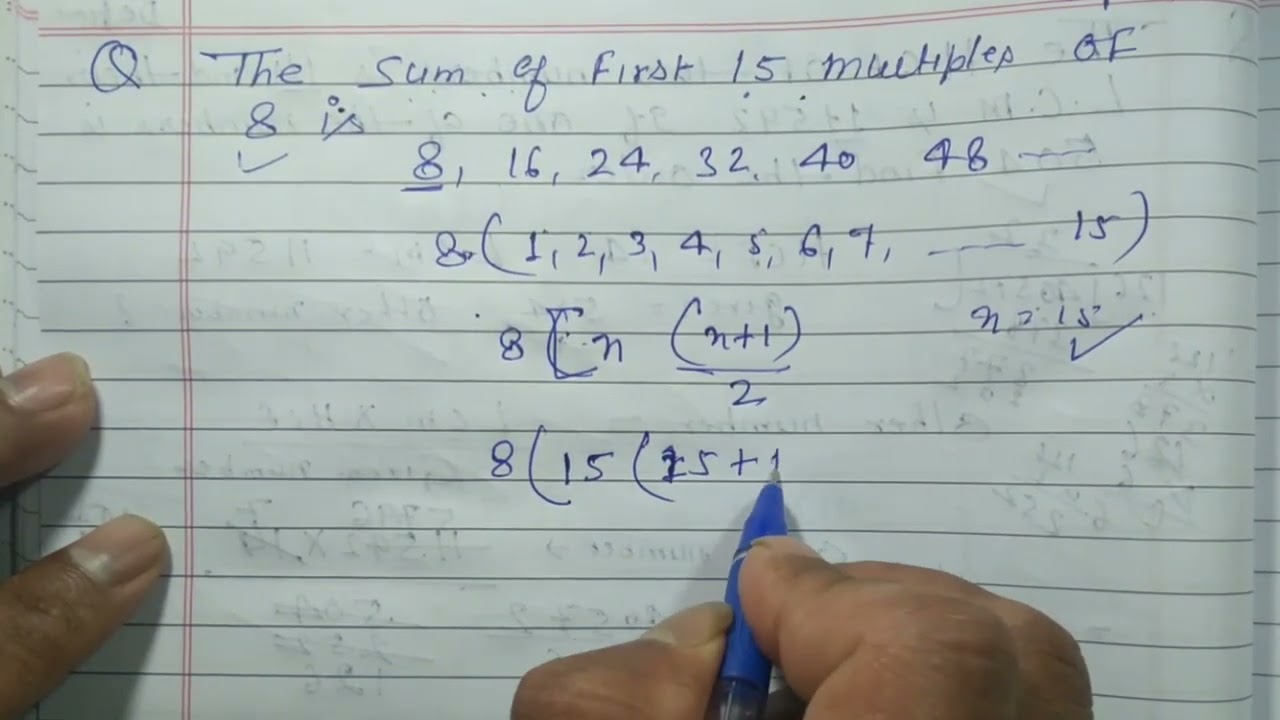 Q The Sum of First 15 multiples OF
8 is
8, 16, 24, 32, 40 48 —
8 ( 1, 2, 3, 4, 5, 6, 7, — 15 )
8 [ n (n+1)/2 n = 15
8 ( 15 ( 15 + 1